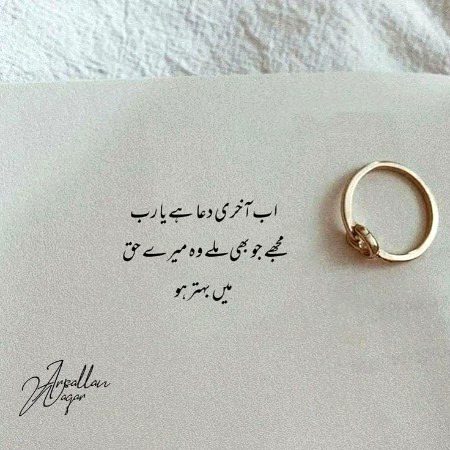 اب آخری دعا ہے یا رب
مجھے جو بھی ملے وہ میرے حق
میں بہتر ہو
Arsallan
Waqar